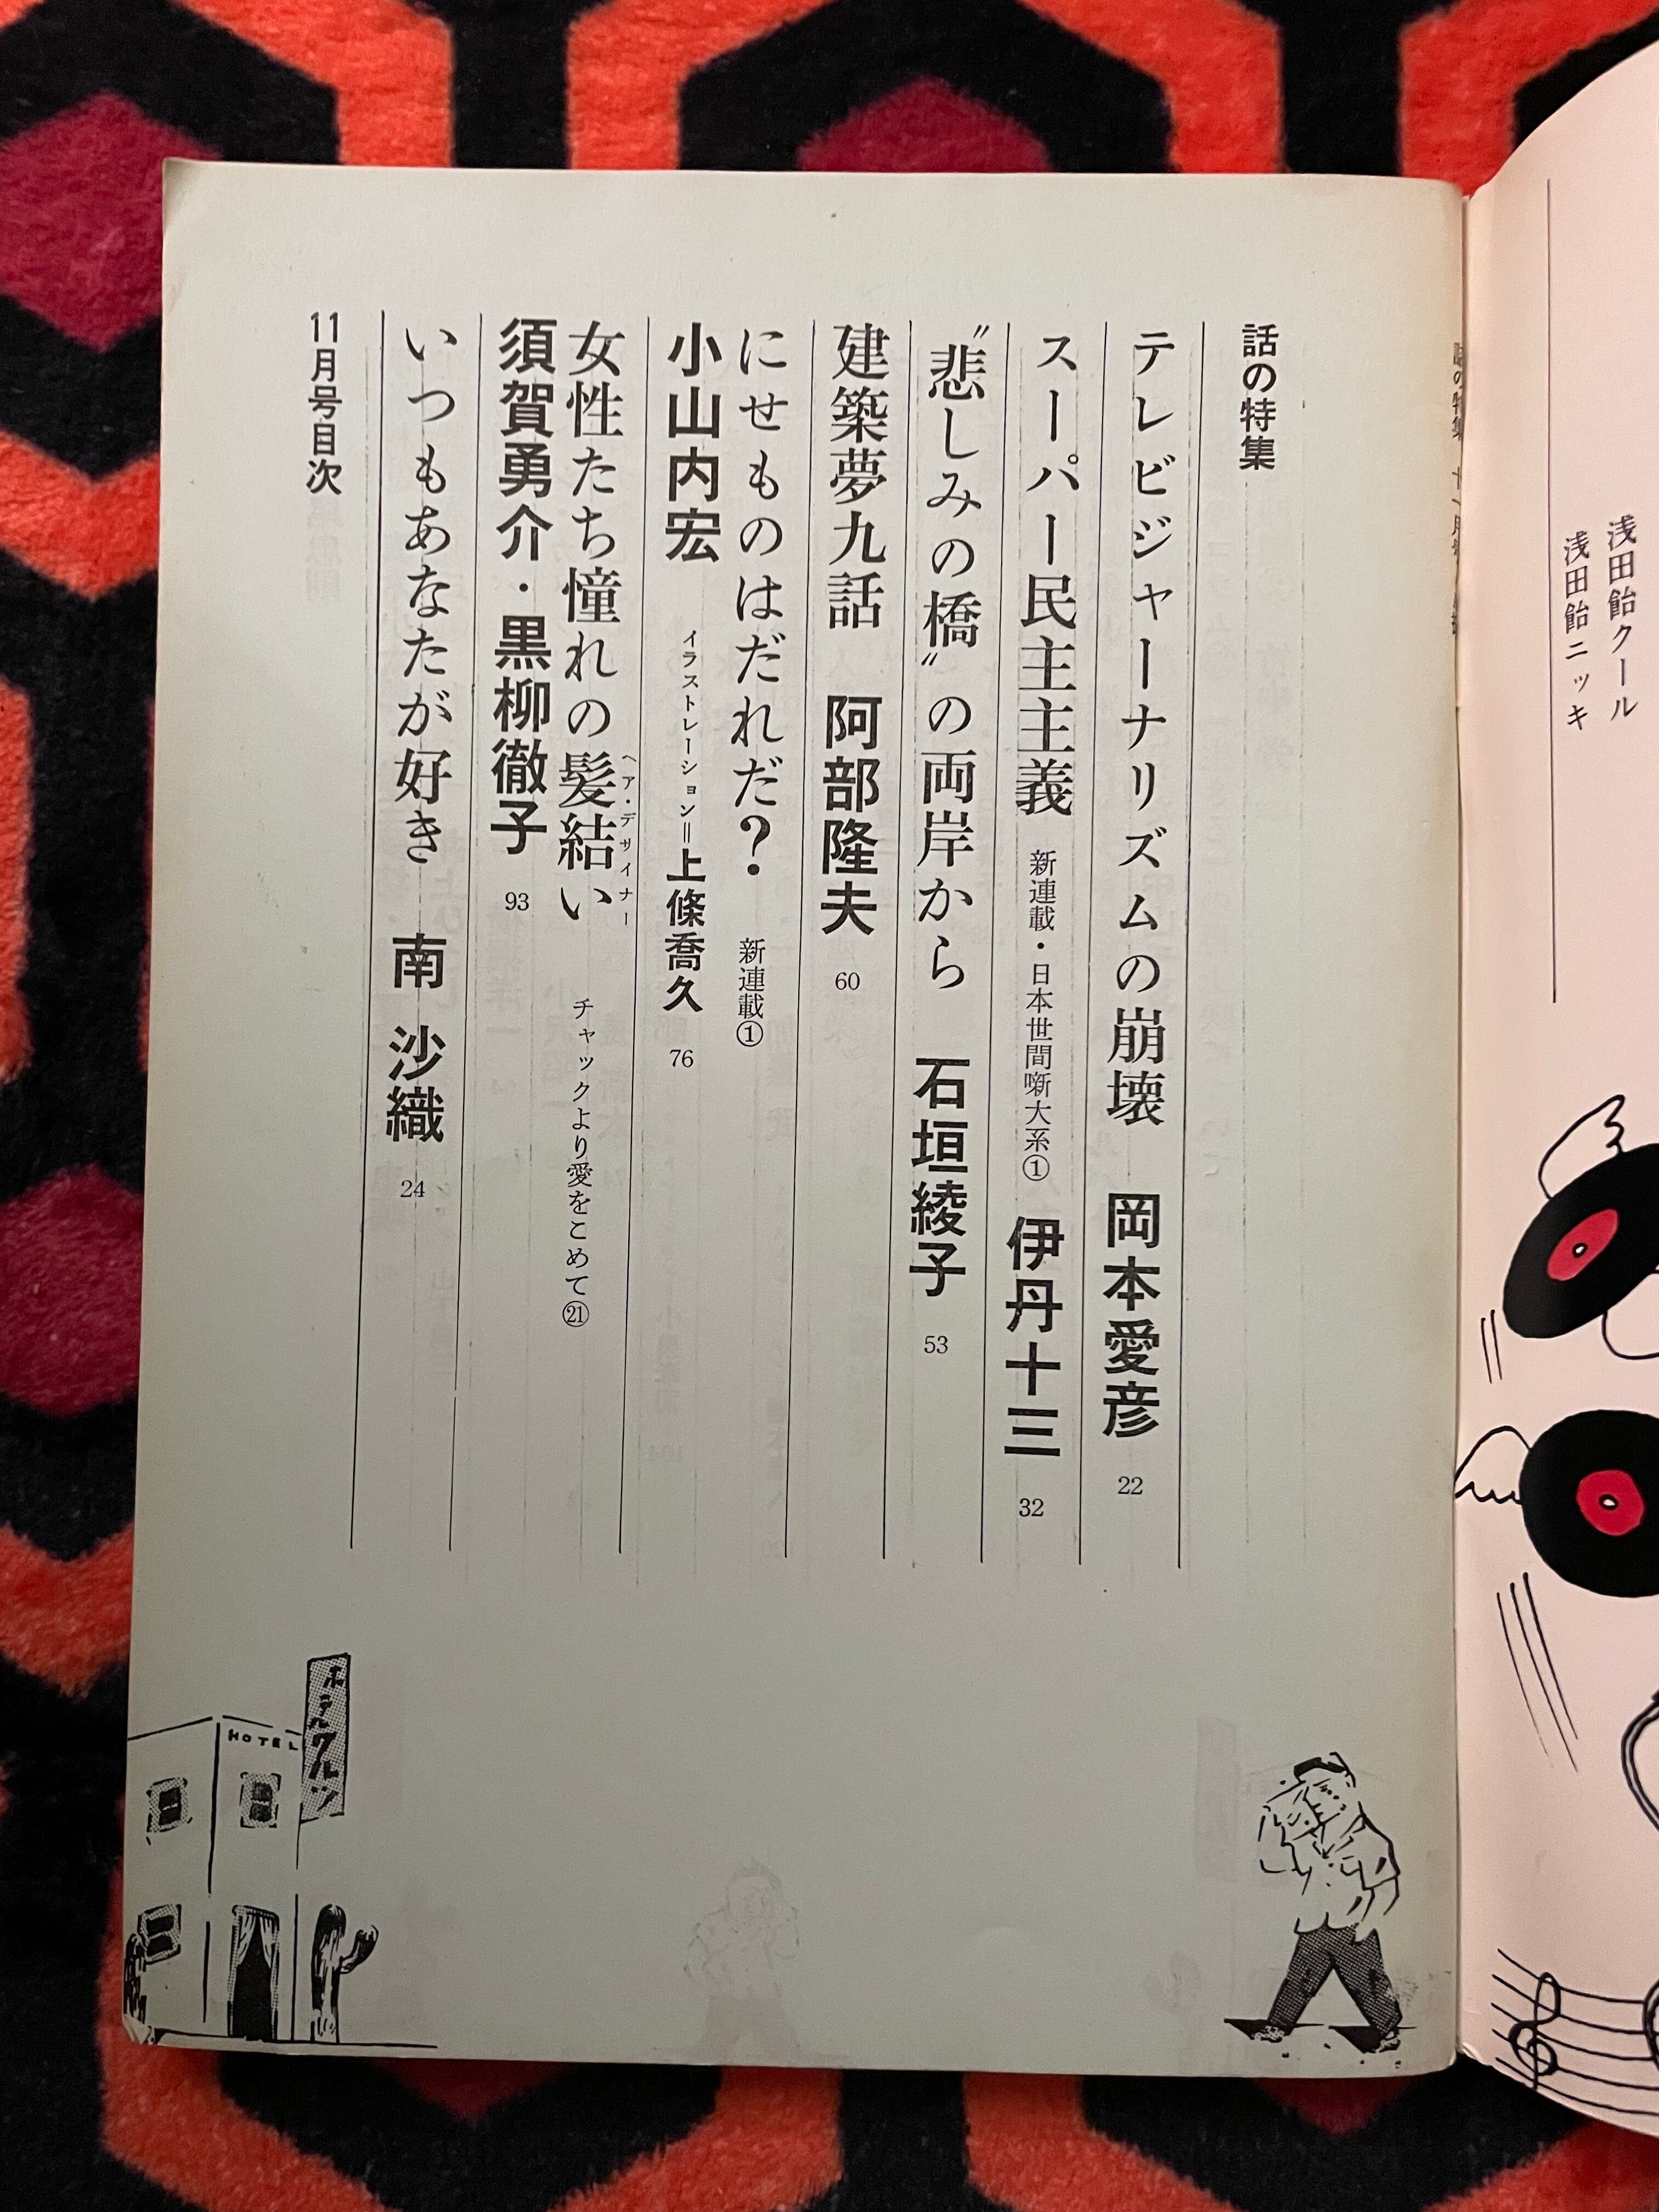 浅田飴クール
浅田飴ニッキ
話の特集
テレビジャーナリズムの崩壊 岡本愛彦 22
スーパー民主主義 新連載・日本世間噺大系① 伊丹十三 32
〝悲しみの橋〟の両岸から 石垣綾子 53
建築夢九話 阿部隆夫 60
にせものはだれだ? 新連載①
小山内宏 イラストレーション=上條喬久 76
女性たち憧れの髪結い チャックより愛をこめて㉑
ヘア・デザイナー
須賀勇介・黒柳徹子 93
いつもあなたが好き 南 沙織 24
11月号目次
HOTEL